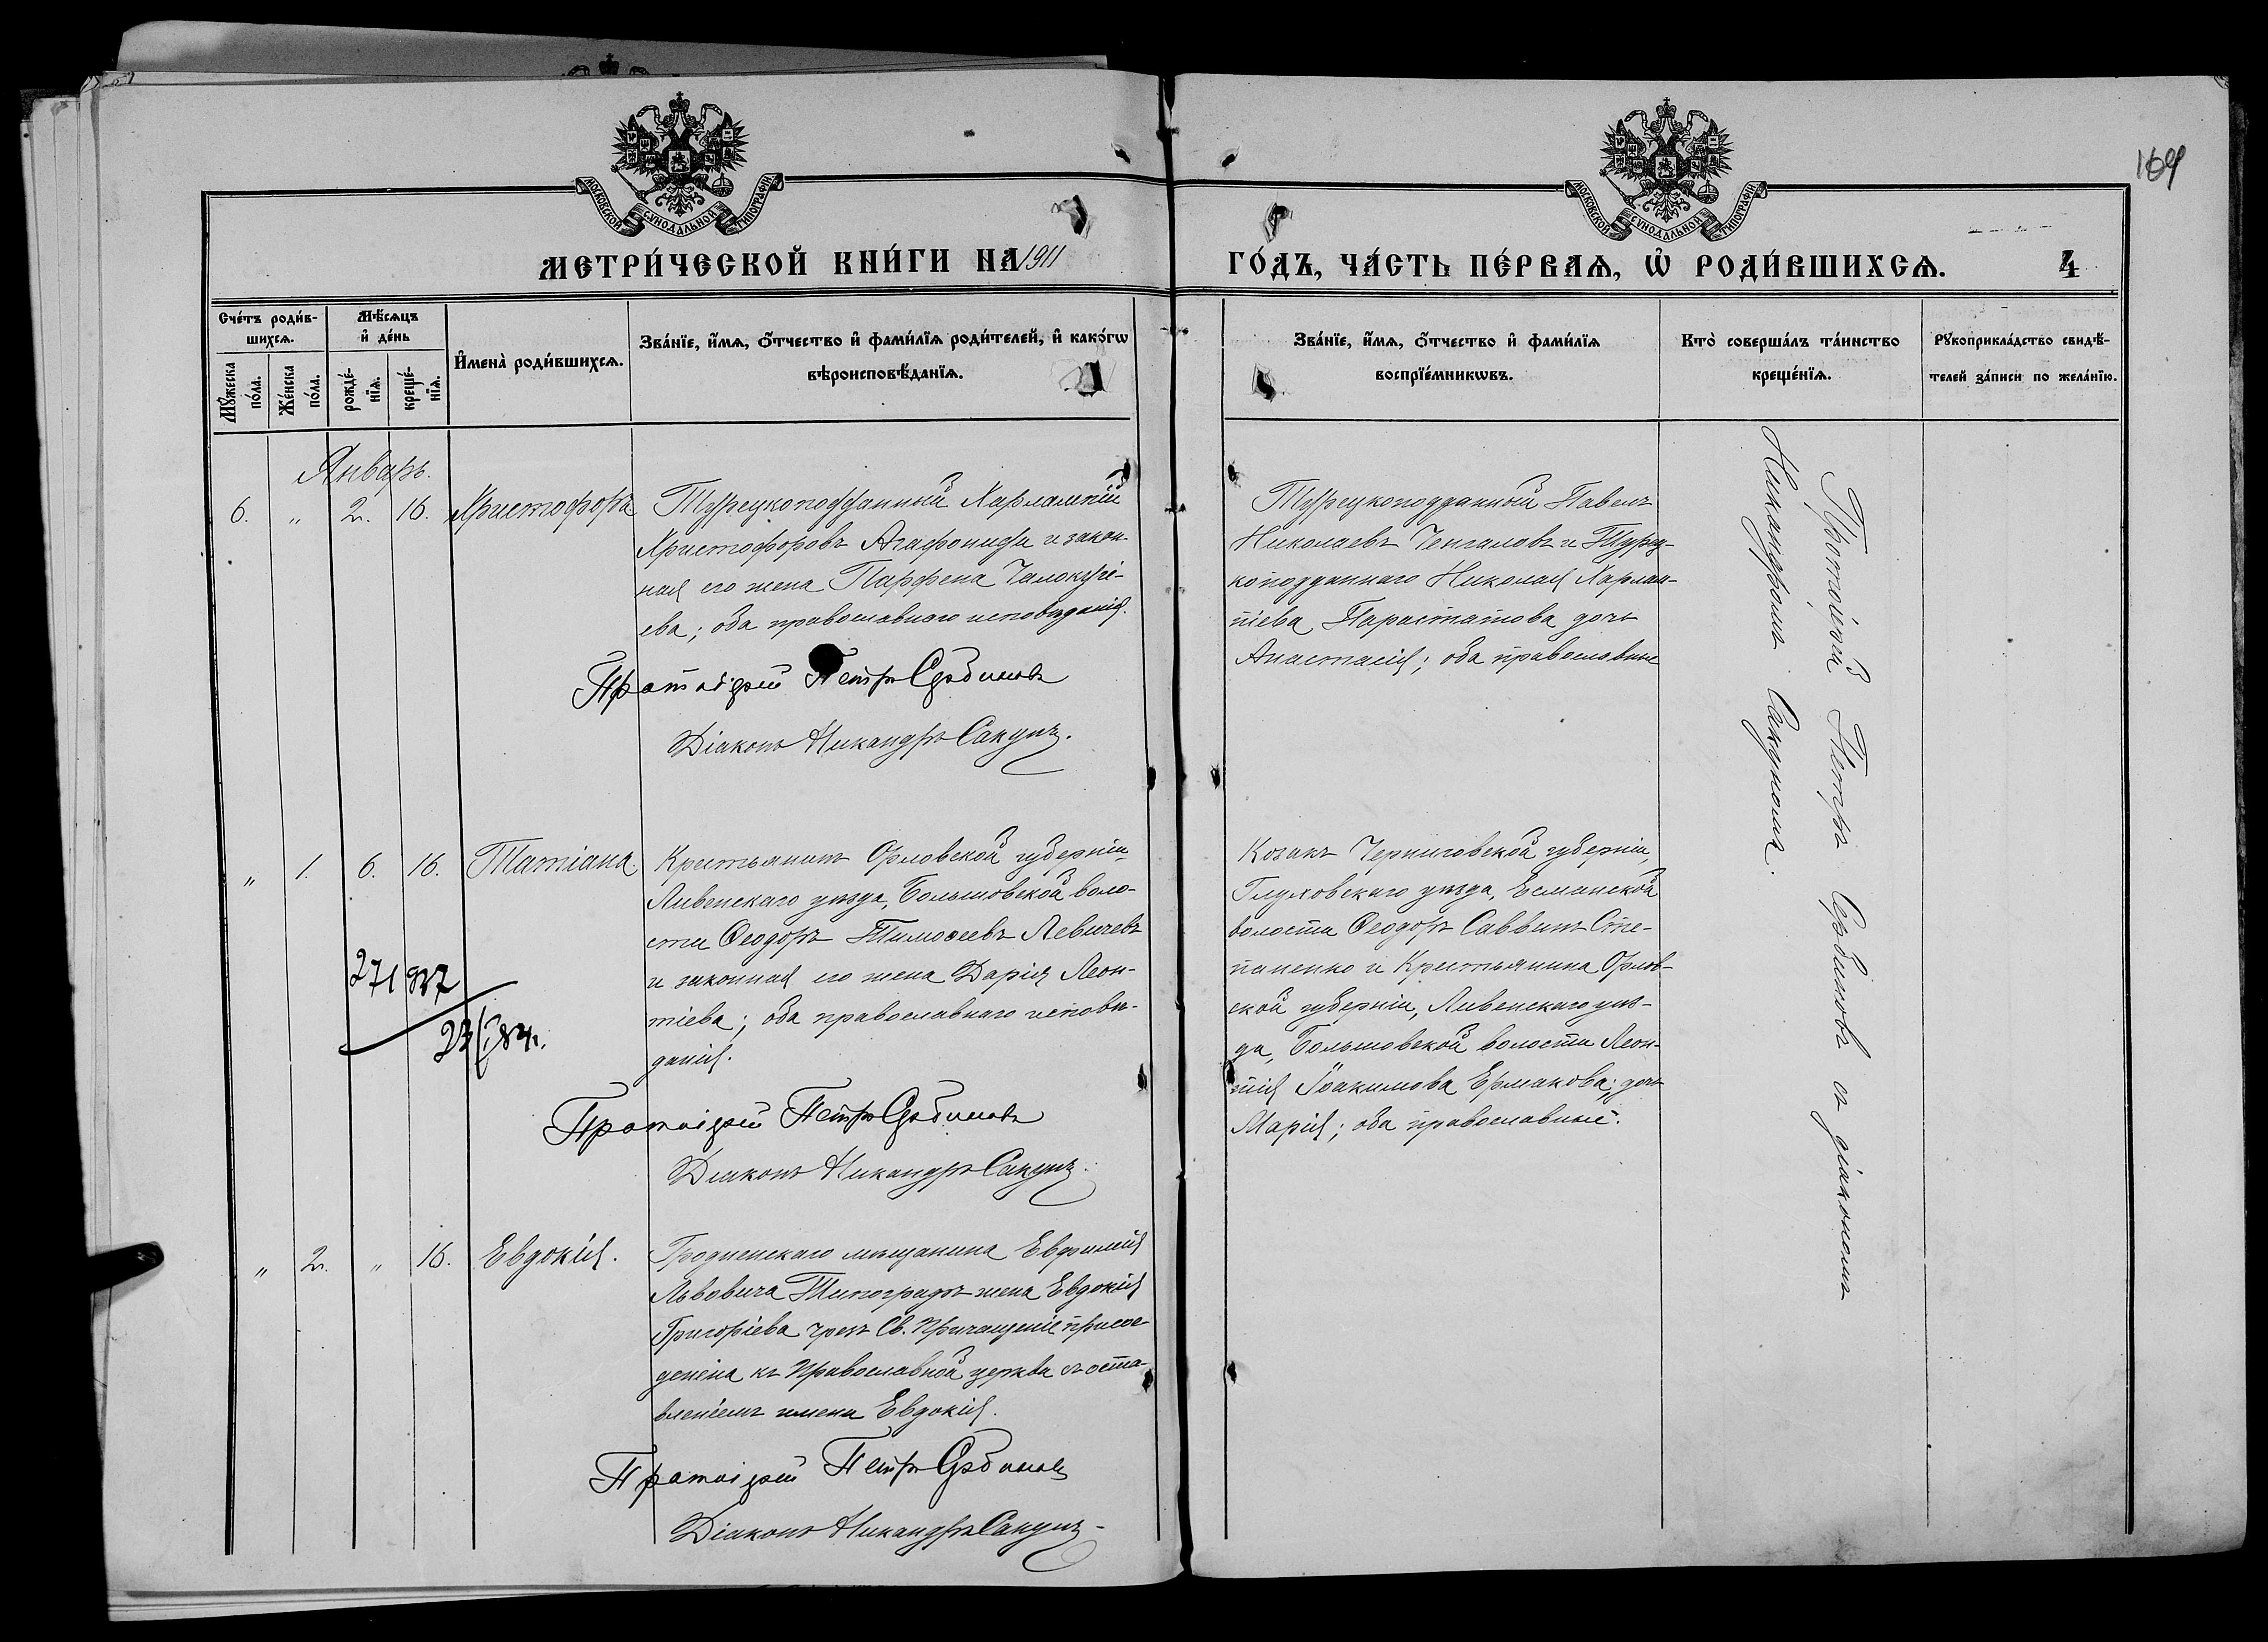 МОСКОВСКОЙ СѴНОДАЛЬНОЙ ТИПОГРАФІИ.
МОСКОВСКОЙ СѴНОДАЛЬНОЙ ТИПОГРАФІИ.
МЕТРИ́ЧЕСКОЙ КНИ́ГИ НА 1911
ГО́ДЪ, ЧА́СТЬ ПЕ́РВАѦ, Ѡ҆ РОДИ́ВШИХСѦ. 4
Сче́тъ роди́в-
шихсѧ.
Мѣ́сѧцъ
и҆ де́нь
Мꙋ́жеска
по́ла.
Же́нска
по́ла.
рожде́-
нїѧ.
креще́-
нїѧ.
И҆мена̀ роди́вшихсѧ.
Зва́нїе, и҆́мѧ, ѻ҆́тчество и҆ фами́лїѧ роди́телей, и҆ како́гѡ
вѣроисповѣ́данїѧ.
Зва́нїе, и҆́мѧ, ѻ҆́тчество и҆ фами́лїѧ
воспрїе́мникѡвъ.
Кто̀ соверша́лъ та́инство
креще́нїѧ.
Рꙋкоприкла́дство свидѣ́-
телей за́писи по жела́нїю.
Январь.
6. „ 2. 16. Христофоръ
Турецкоподданный Харлампій
Христофоровъ Агафониди и закон-
ная его жена Парфена
ева; оба православнаго исповѣданія.
Протоіерей Петръ Сербиновъ
Діаконъ Никандръ Сакунъ.
Турецкоподданный Павелъ
Николаевъ Ченгаловъ и Турец-
коподданнаго Николая Харлам-
піева Парастатова дочь
Анастасія; оба православные
Протоіерей Петръ Сербиновъ съ діакономъ
Никандромъ Сакуномъ.
„ 1. 6. 16. Татіана
Крестьянинъ Орловской губерніи,
Ливенскаго уѣзда, Большовской воло-
сти Ѳеодоръ Тимоѳеевъ Левичевъ
и законная его жена Дарія Леон-
тіева; оба православнаго исповѣ-
данія.
Протоіерей Петръ Сербиновъ
Діаконъ Никандръ Сакунъ.
Козакъ Черниговской губерніи,
Глуховскаго уѣзда, Есманской
волости Ѳеодоръ Саввинъ Сте-
паненко и Крестьянина Орлов-
ской губерніи, Ливенскаго уѣз-
да, Большовской волости Леон-
тія Іоакимова Ермакова, дочь
Марія; оба православные.
„ 2. „ 16. Евдокія.
Гродненскаго мѣщанина Евфимія
Львовича жена Евдокія
Григоріева чрезъ Св. Причащеніе присое-
динена къ Православной церкви съ оста-
вленіемъ имени Евдокія.
Протоіерей Петръ Сербиновъ
Діаконъ Никандръ Сакунъ